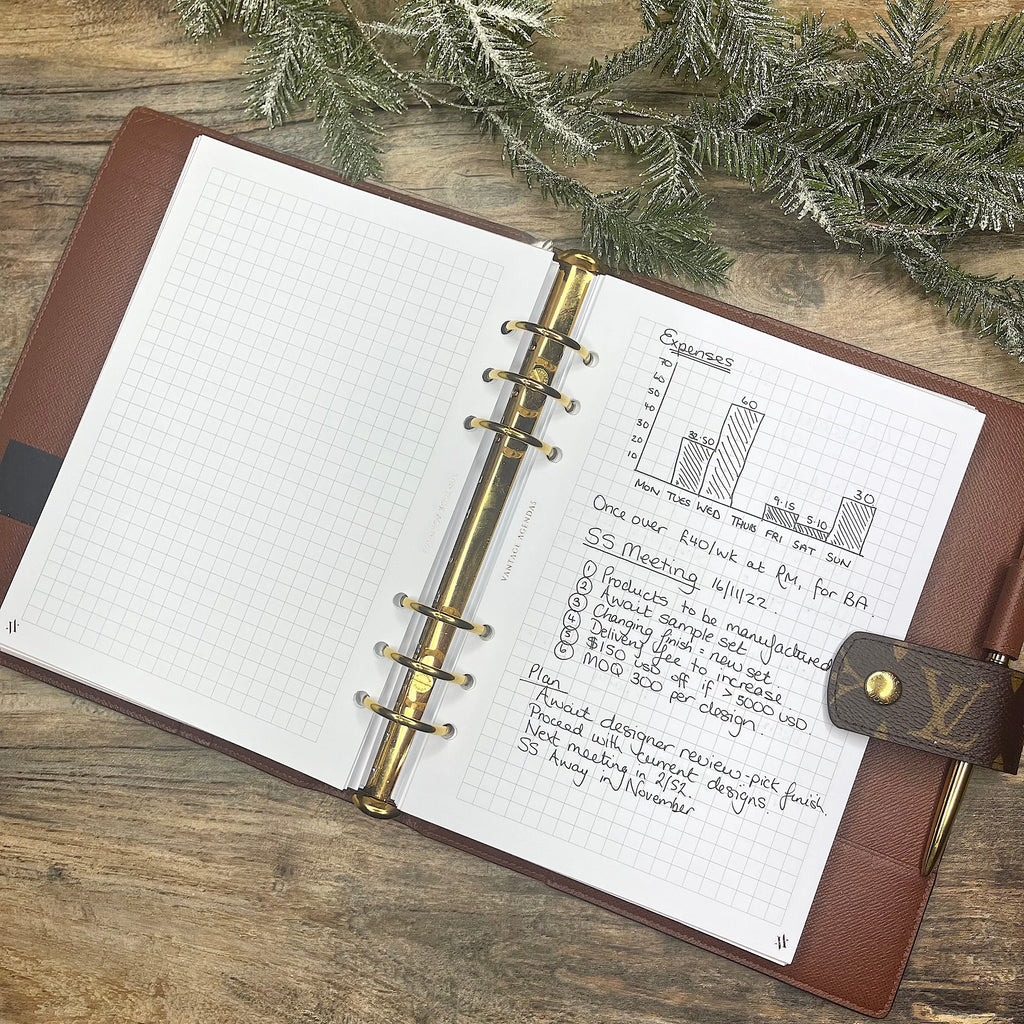 Expenses
70
60
50
40
30
20
10
32.50
60
9.15
5.10
30
MON TUES WED THURS FRI SAT SUN
Once over £40/wk at RM, for BA.
SS Meeting 16/11/22.
① Products to be manufactured
② Await sample set
③ Changing finish = new set
④ Delivery fee to increase
⑤ $150 USD off if >5000 USD
⑥ MOQ 300 per design.
Plan
Await designer review - pick finish.
Proceed with current designs.
Next meeting in 2/52.
SS Away in November
VANTAGE AGENDAS